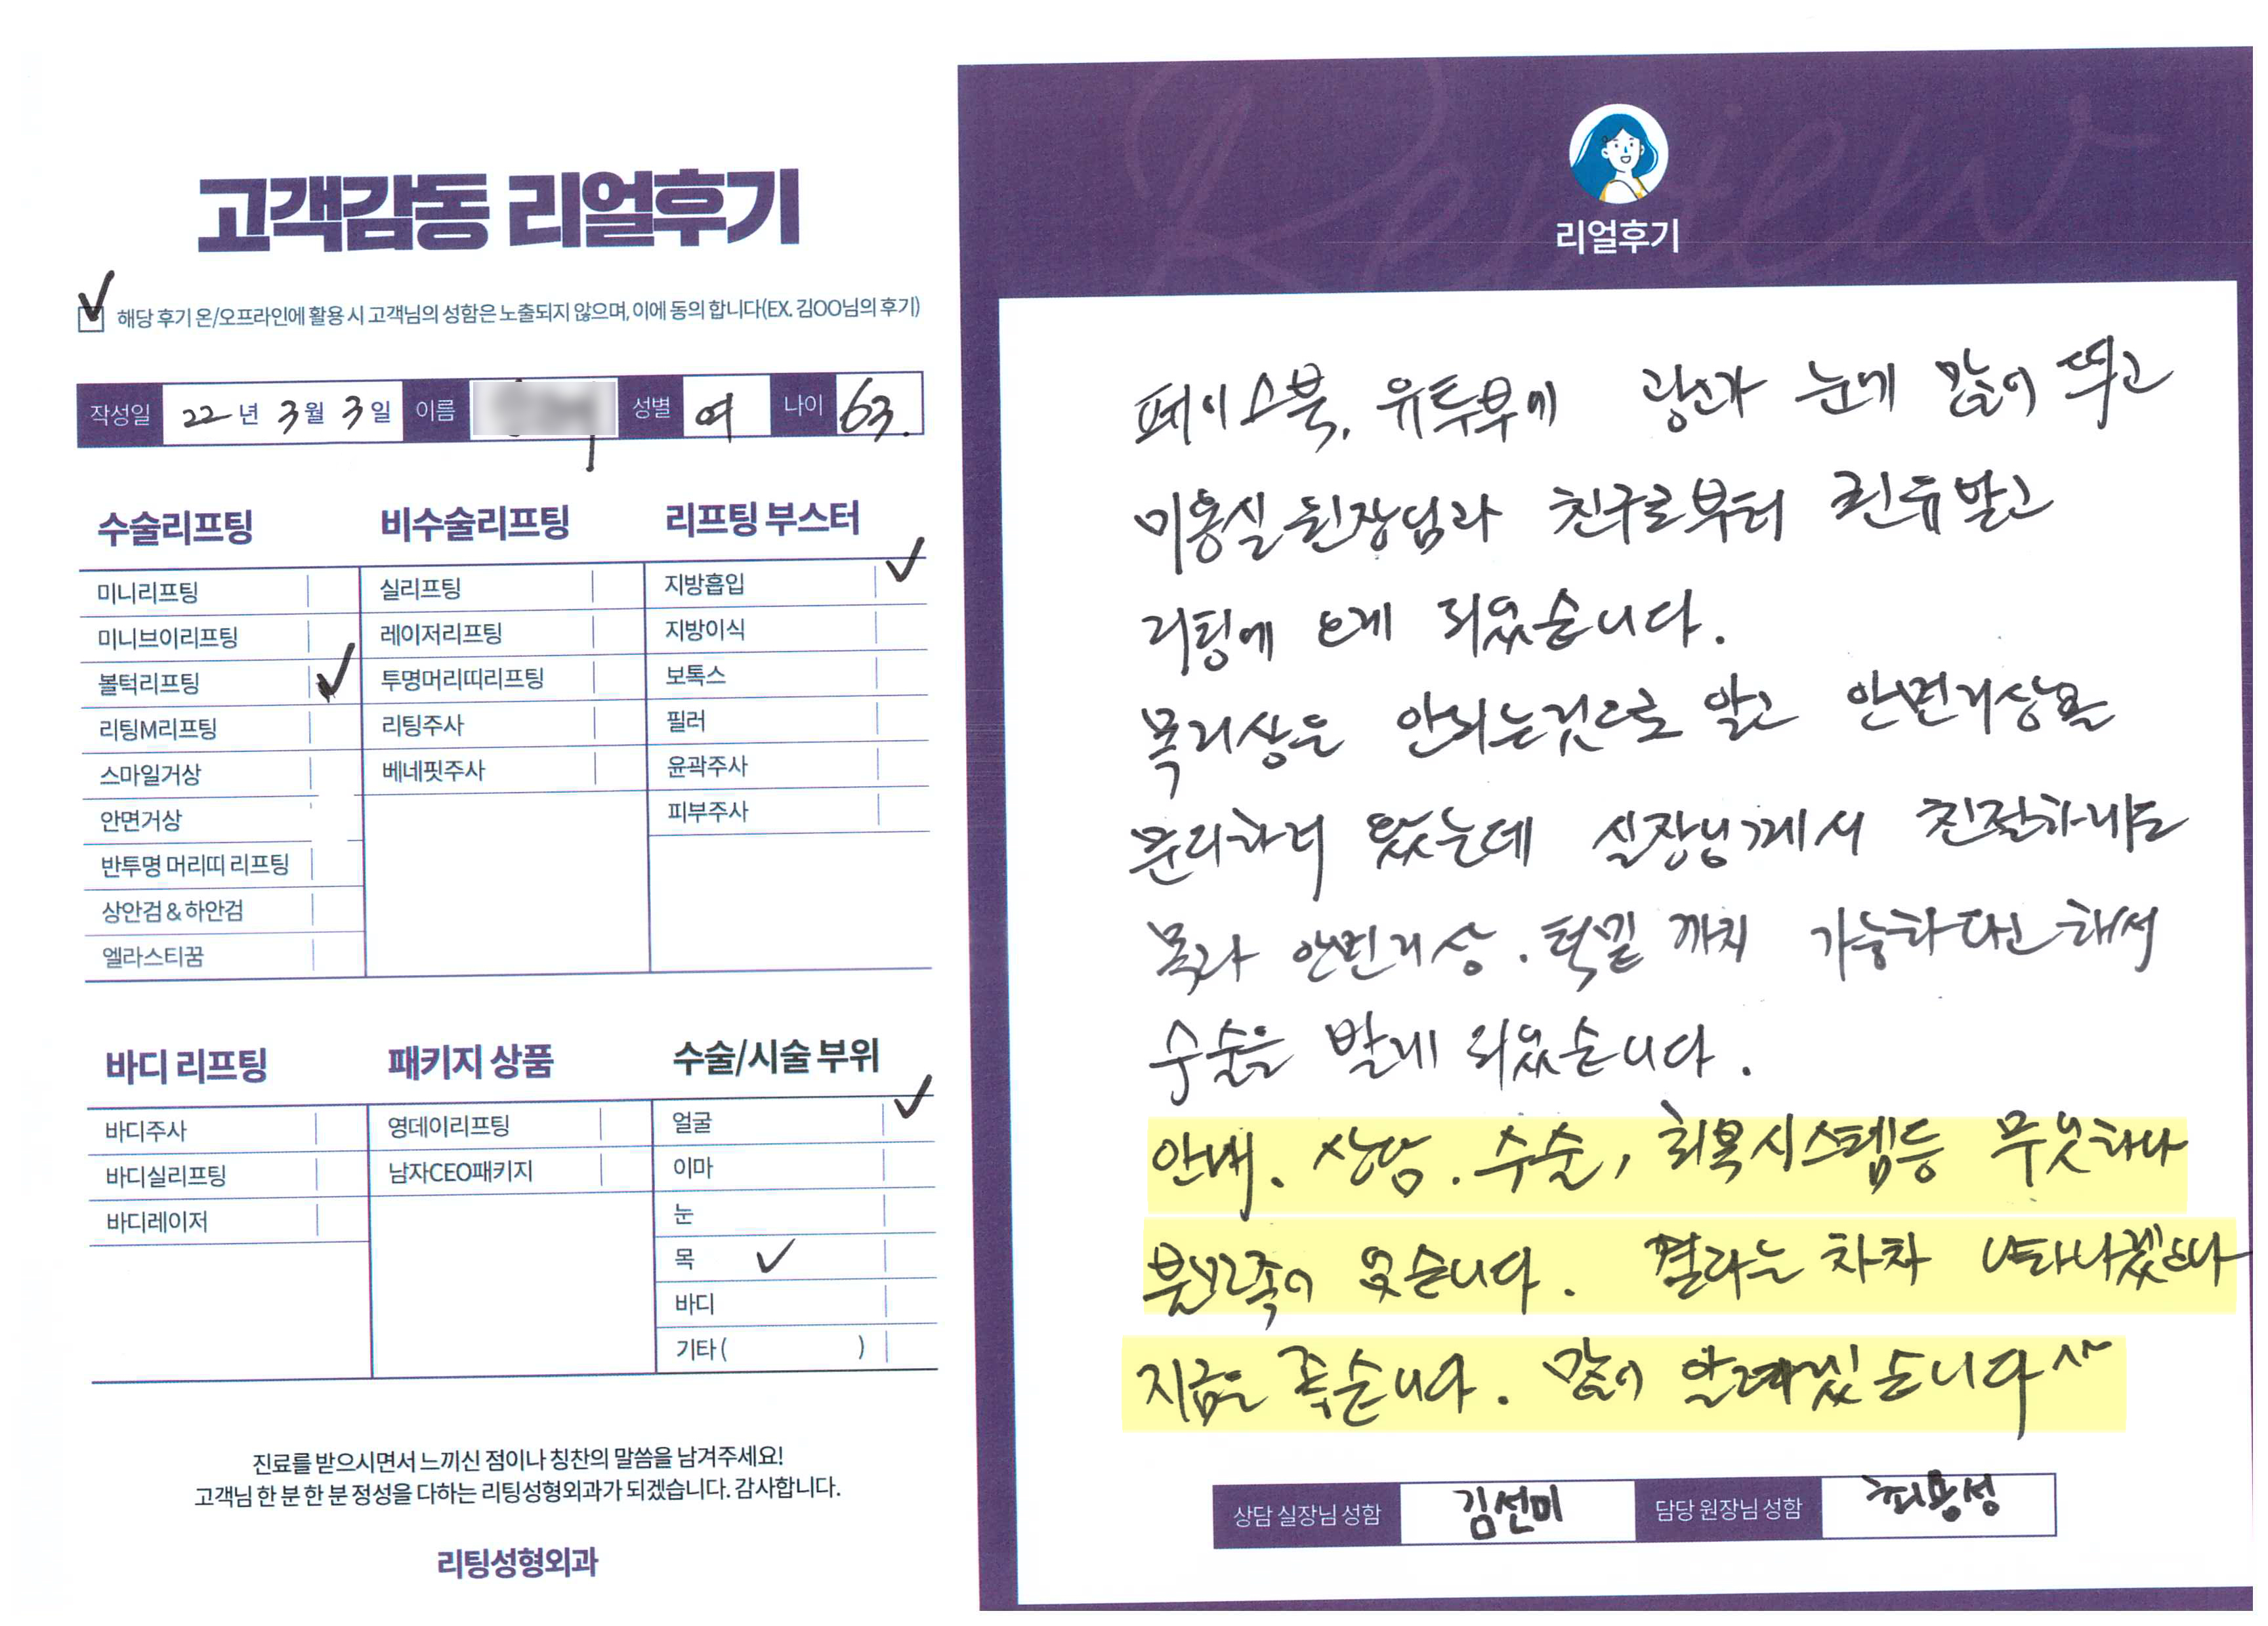 고객감동 리얼후기
해당 후기 온/오프라인에 활용 시 고객님의 성함은 노출되지 않으며, 이에 동의 합니다(EX. 김OO님의 후기)
작성일 22년 3월 3일 이름 성별 여 나이 63.
수술리프팅
미니리프팅
미니브이리프팅
볼턱리프팅
리팅M리프팅
스마일거상
안면거상
반투명 머리띠 리프팅
상안검 & 하안검
엘라스티꿈
비수술리프팅
실리프팅
레이저리프팅
투명머리띠리프팅
리팅주사
베네핏주사
리프팅 부스터
지방흡입
지방이식
보톡스
필러
윤곽주사
피부주사
바디 리프팅
바디주사
바디실리프팅
바디레이저
패키지 상품
영데이리프팅
남자CEO패키지
수술/시술 부위
얼굴
이마
눈
목
바디
기타 ( )
진료를 받으시면서 느끼신 점이나 칭찬의 말씀을 남겨주세요!
고객님 한 분 한 분 정성을 다하는 리팅성형외과가 되겠습니다. 감사합니다.
리팅성형외과
Review
리얼후기
페이스북, 유투부에 광고가 눈에 많이 띄고
미용실 원장님과 친구로부터 권유받고
리팅에 오게 되었습니다.
목거상은 안되는것으로 알고 안면거상을
문의하러 왔는데 실장님께서 친절하게도
목과 안면거상. 턱밑 까지 가능하다고 해서
수술을 받게 되었습니다.
안내. 상담. 수술, 회복시스템등 무엇하나
불만족이 없습니다. 결과는 차차 나타나겠으나
지금은 족습니다. 많이 알려겠습니다^^
상담 실장님 성함 김선미 담당 원장님 성함 최용성